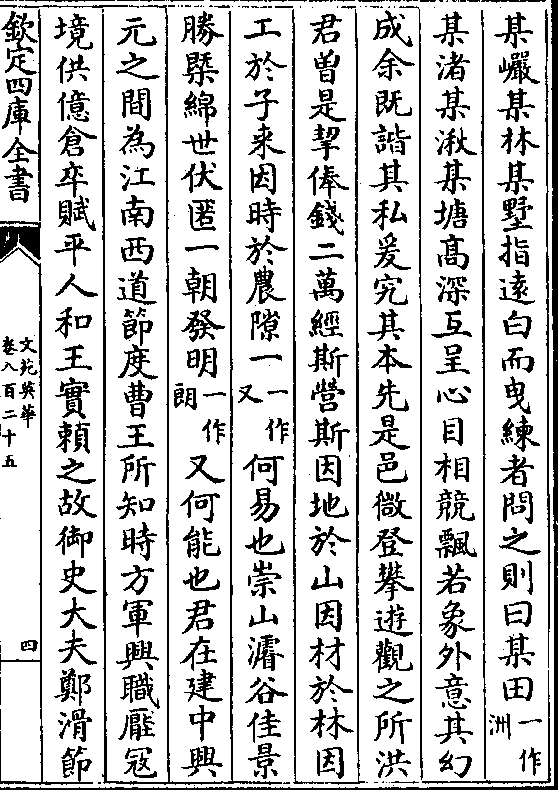 某巘某林某墅指逺白而曳練者問之則曰某田一作洲
某渚某湫某塘髙深互呈心目相競飄若象外意其幻
成余既諧其私爰究其本先是邑㣲登攀遊觀之所洪
君曽是挈俸錢二萬經斯營斯因地於山因材於林因
工於子来因時於農隙一一作又何易也崇山濬谷佳景
勝槩綿世伏匿一朝發明一作朗又何能也君在建中興
元之間為江南西道節度曹王所知時方軍興職龎冦
境供億倉卒賦平人和王實頼之故御史大夫鄭滑節
欽定四庫全書
文苑英華
卷八百二十五
四